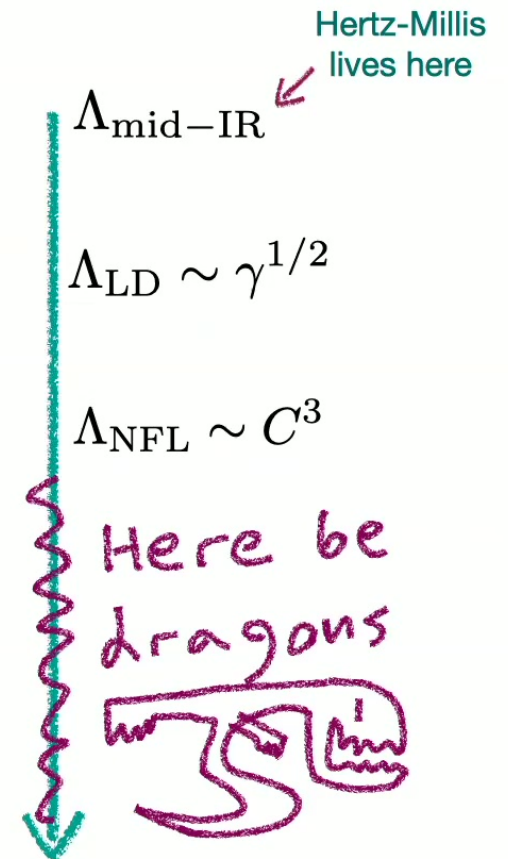 Hertz-Millis
lives here
Λ_mid−IR
Λ_LD ∼ γ^1/2
Λ_NFL ∼ C^3
Here be
dragons